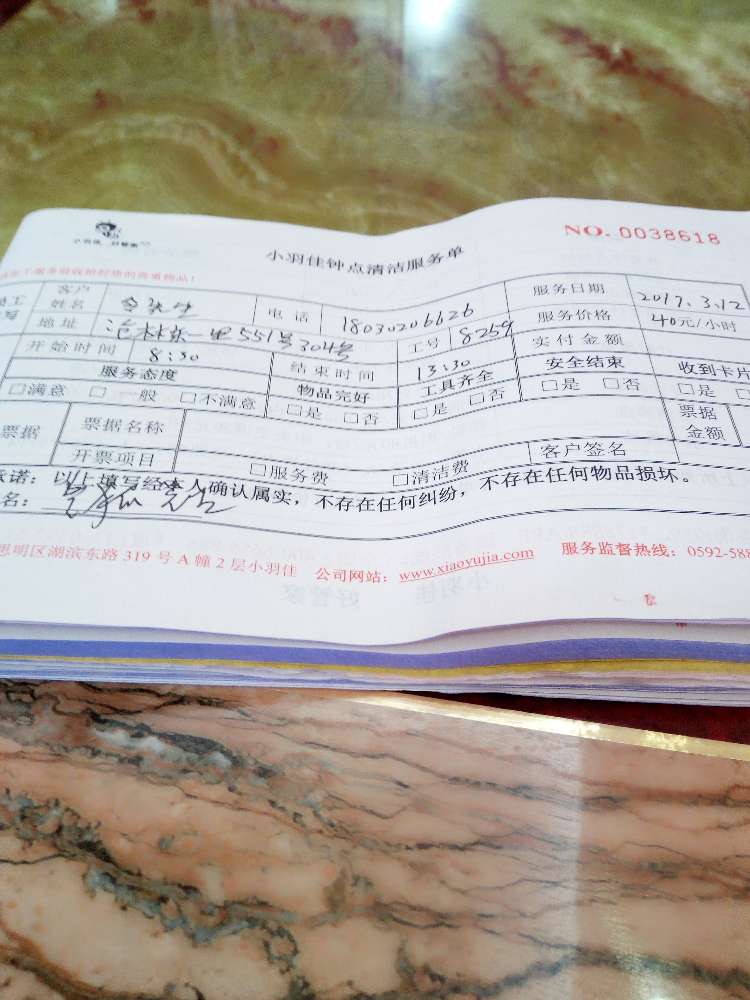 小羽佳 好管家
小羽佳钟点清洁服务单
NO. 0038618
客户姓名 电话 18030206626 服务日期 2017.3.12
地址 551号304号 工号 8259 服务价格 40元/小时
开始时间 8:30 结束时间 13:30 实付金额
服务态度 物品完好 工具齐全 安全结束 收到卡片
□满意 □一般 □不满意 □是 □否 □是 □否 □是 □否 □是
票据 票据名称 票据金额
开票项目 □服务费 □清洁费 客户签名
承诺：以上填写经本人确认属实，不存在任何纠纷，不存在任何物品损坏。
名：
思明区湖滨东路 319 号 A 幢 2 层小羽佳 公司网站：www.xiaoyujia.com 服务监督热线：0592-588